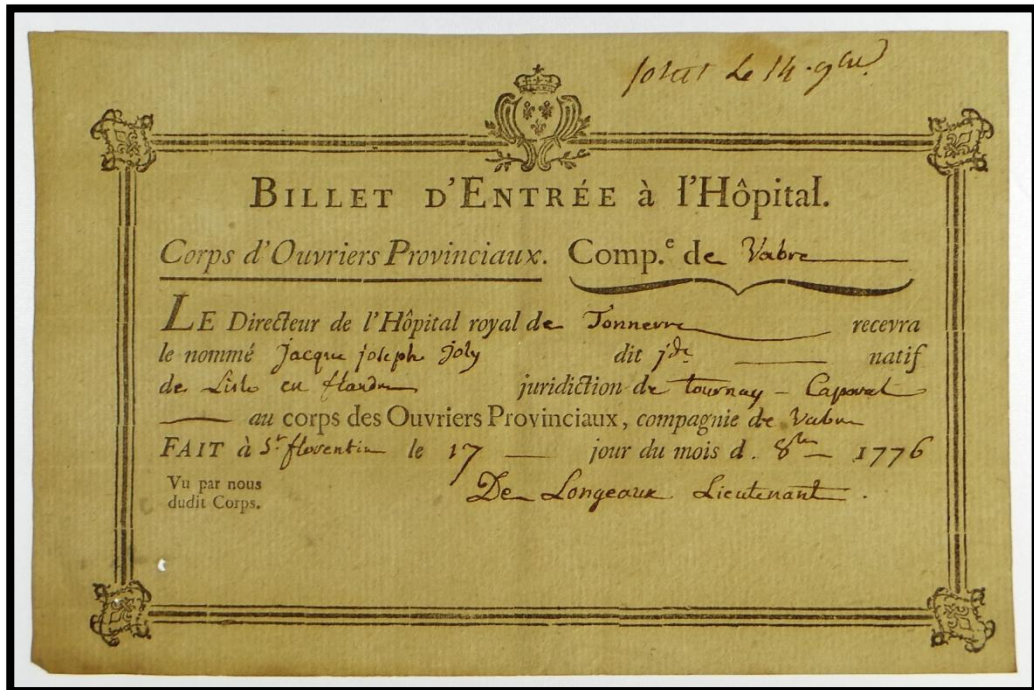 sortit le 14. 9bre
BILLET D'ENTRÉE à l'Hôpital.
Corps d'Ouvriers Provinciaux. Comp.e de Vabre
LE Directeur de l'Hôpital royal de Tonnerre recevra
le nommé Jacque joseph joly dit jde natif
de Lisle en flandre juridiction de tournay - Caporal
au corps des Ouvriers Provinciaux, compagnie de Vabre
FAIT à St florentin le 17 jour du mois d. 8bre 1776
Vu par nous
dudit Corps.
De Longeaux Lieutenant.